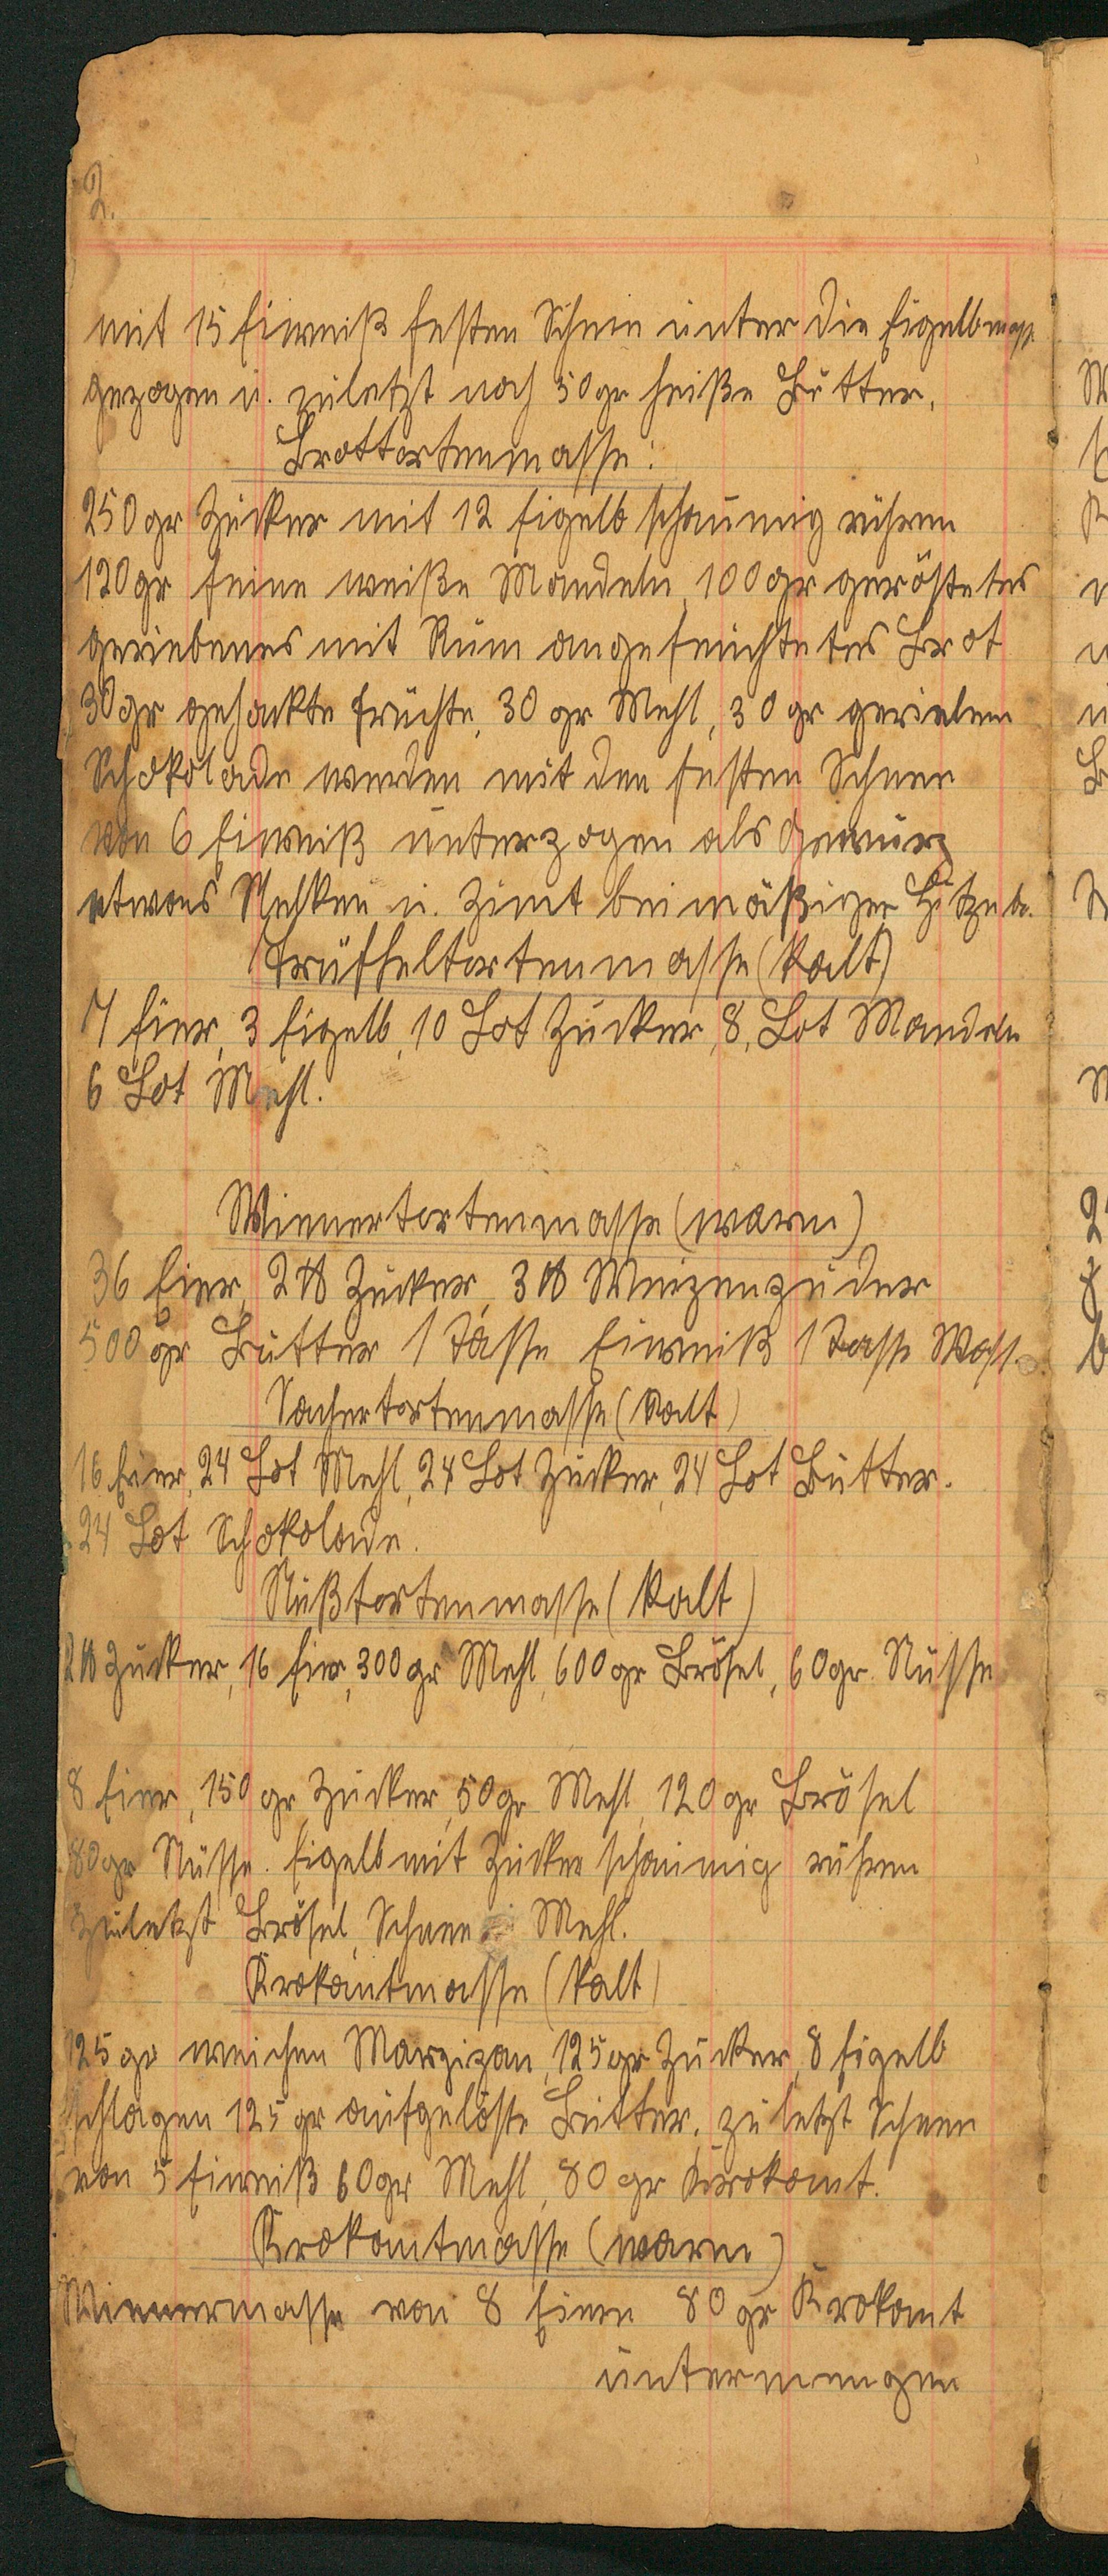 2.
mit 15 Eiweiß festen Schnee unter die Eigelbmass
gezogen u. zuletzt noch 50gr heiße Butter.
Brottortenmasse:
250gr Zucker mit 12 Eigelb schaumig rühren
120gr feine weiße Mandeln, 100gr geröstetes
geriebenes mit Rum angefeuchtetes Brot
30gr gehackte Früchte, 30 gr Mehl, 30 gr gerieben
Schokolade werden mit den festen Schnee
von 6 Eiweiß unterzogen als Gewürz
etwas Nelken u. Zimt bei mäßiger Hitze b.
Trüffeltortenmasse (kalt)
7 Eier, 3 Eigelb, 10 Lot Zucker, 8, Lot Mandeln
6 Lot Mehl.
Wienertortenmasse (warm)
36 Eier, 2 ℔ Zucker, 3 ℔ Weizenzuder
500 gr Butter 1 Tasse Eiweiß 1 Tasse Wass.
Sachertortenmasse (kalt)
16 Eier, 24 Lot Mehl, 24 Lot Zucker, 24 Lot Butter.
24 Lot Schokolade.
Nußtortenmasse (kalt)
2 ℔ Zucker, 16 Eier, 300 gr Mehl, 600 gr Brösel, 60gr Nüsse
8 Eier, 150 gr Zucker, 50gr Mehl, 120 gr Brösel
80gr Nüsse. Eigelb mit Zucker schaumig rühren
zuletzt Brösel, Schnee Mehl.
Krokantmasse (kalt)
125 gr weichen Marzipan, 125gr Zucker, 8 Eigelb
schlagen 125 gr aufgelöste Butter, zuletzt Schnee
von 5 Eiweiß 60gr Mehl, 80 gr Krokant.
Krokantmasse (warm)
Wienermasse von 8 Eiern 80 gr Krokant
untermengen